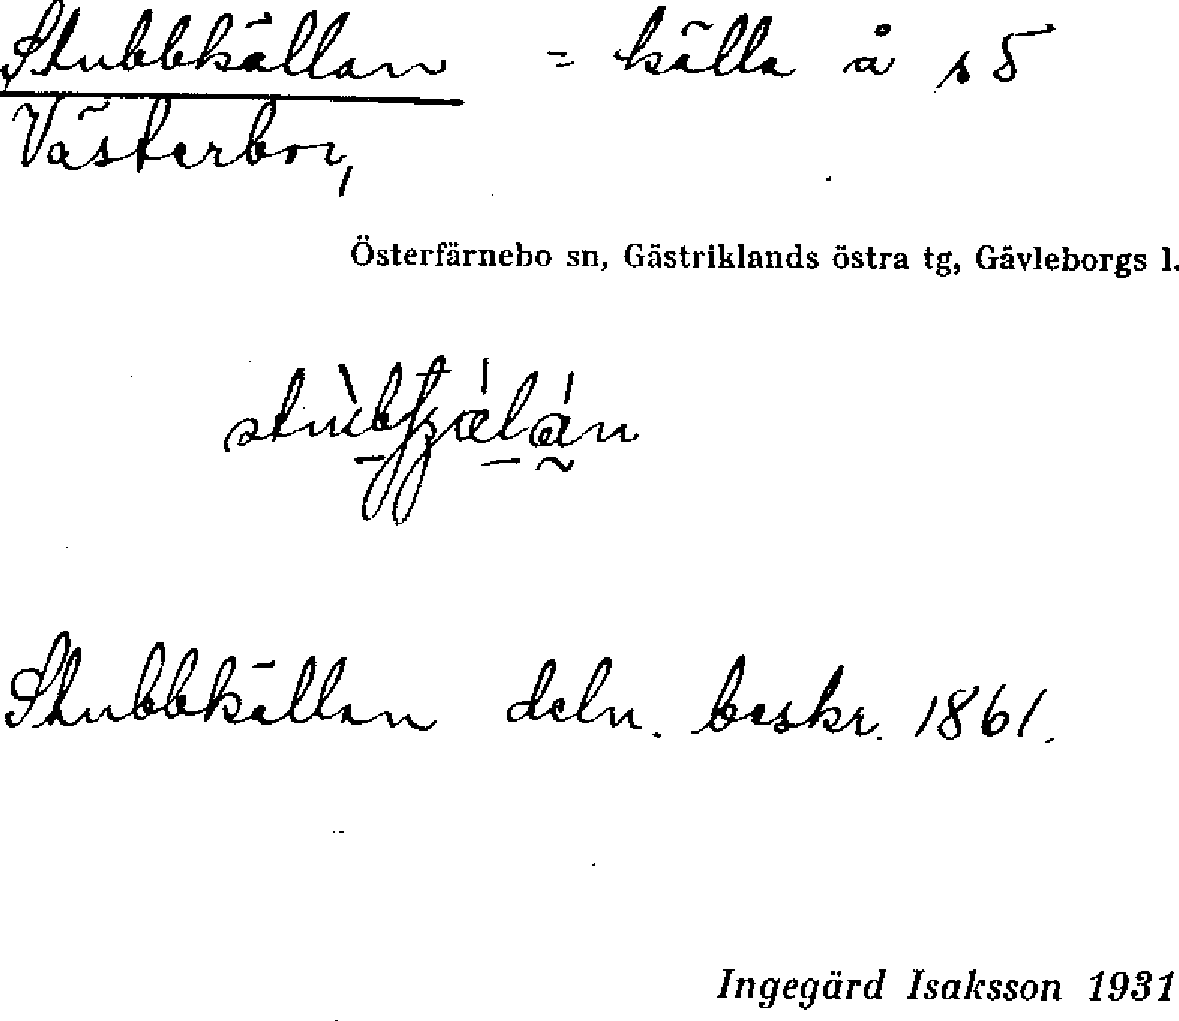 Stubbkällan = källa å s 5
Västerbor,
Österfärnebo sn, Gästriklands östra tg, Gävleborgs l.
Stubbkällan deln. beskr. 1861.
Ingegärd Isaksson 1931